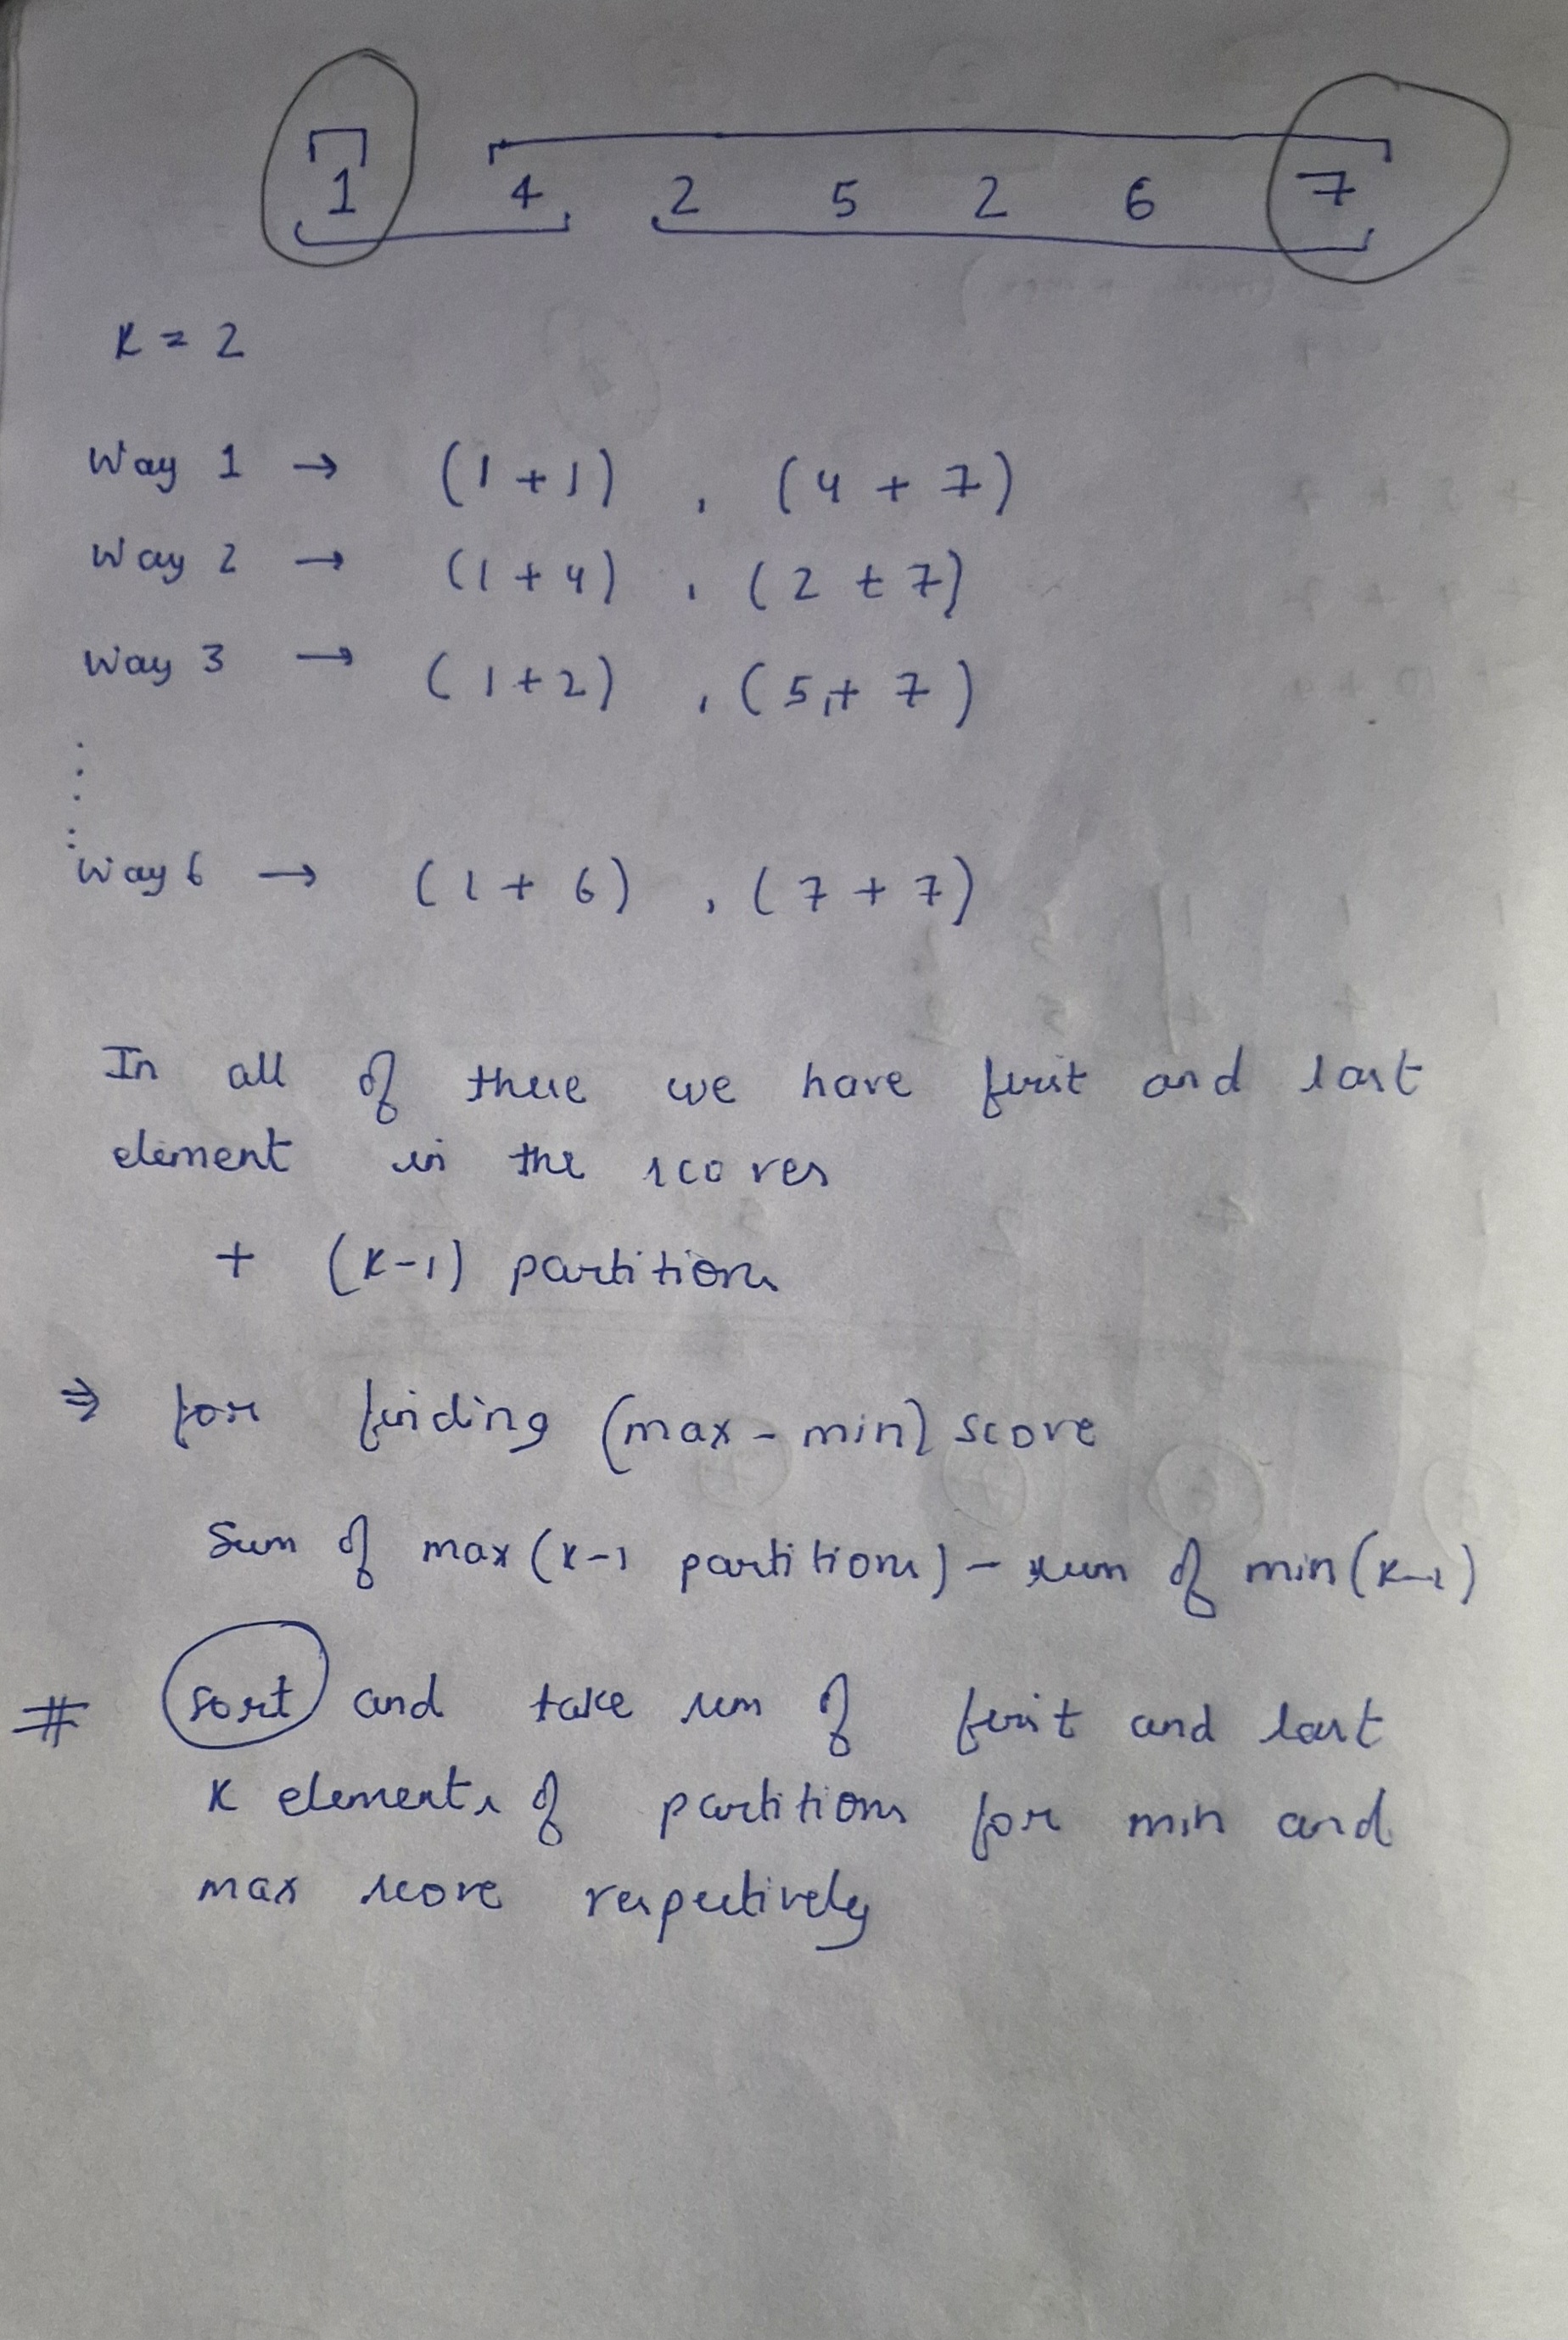 1 4 2 5 2 6 7
K = 2
Way 1 → (1 + 1) , (4 + 7)
Way 2 → (1 + 4) , (2 + 7)
Way 3 → (1 + 2) , (5 + 7)
Way 6 → (1 + 6) , (7 + 7)
In all of these we have first and last
element in the scores
+ (K-1) partitions
⇒ for finding (max - min) score
Sum of max (K-1 partitions) - sum of min (K-1)
# sort and take sum of first and last
K elements of partitions for min and
max score respectively